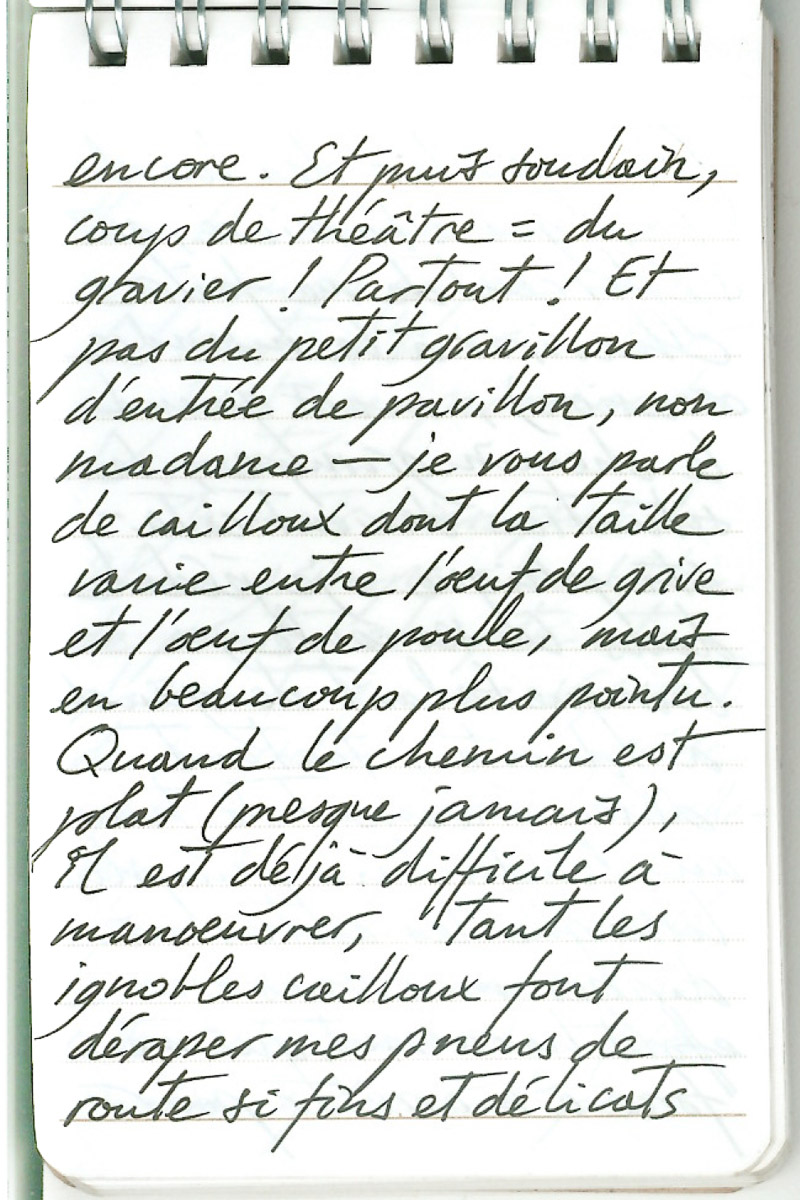 encore. Et puis soudain,
coups de théâtre = du
gravier ! Partout ! Et
pas du petit gravillon
d'entrée de pavillon, non
madame — je vous parle
de cailloux dont la taille
varie entre l'œuf de grive
et l'œuf de poule, mais
en beaucoup plus pointu.
Quand le chemin est
plat (presque jamais),
il est déjà difficile à
manoeuvrer, tant les
ignobles cailloux font
déraper mes pneus de
route si fins et délicats